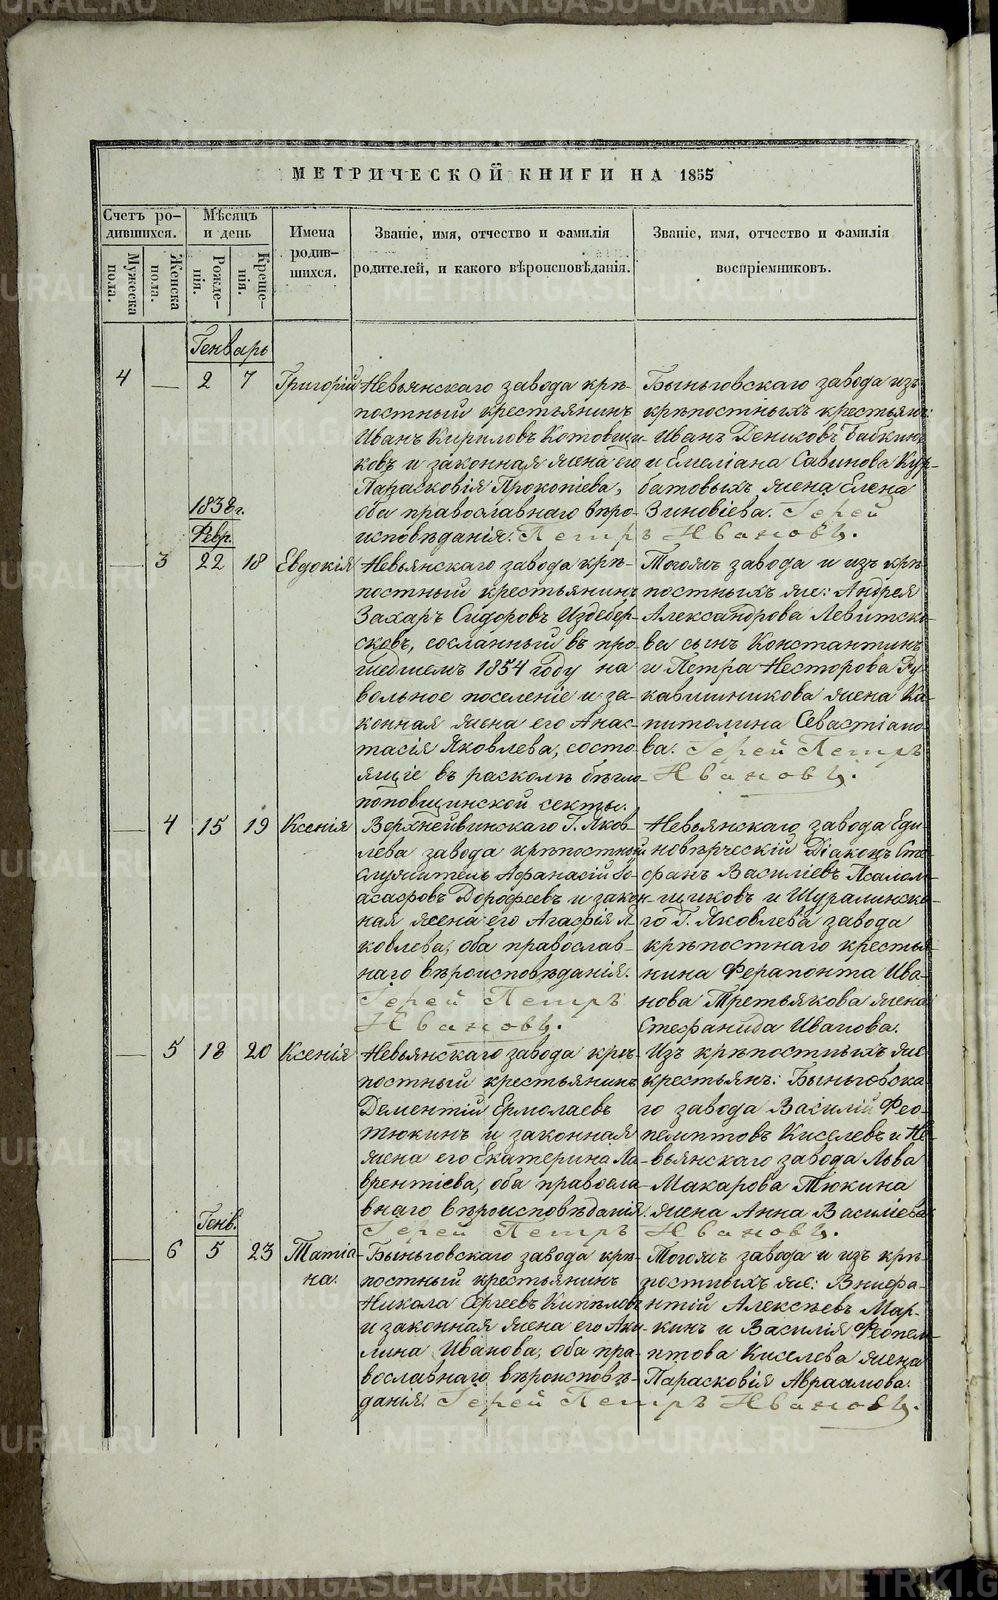 МЕТРИЧЕСКОЙ КНИГИ НА 1855
Счетъ ро-
дившихся.
Мужеска
пола.
Женска
пола.
Мѣсяцъ
и день
Рожде-
нія.
Креще-
нія.
Имена
родив-
шихся.
Званіе, имя, отчество и фамилія
родителей, и какого вѣроисповѣданія.
Званіе, имя, отчество и фамилія
воспріемниковъ.
Генварь
4 — 2 7 Григорій
Невьянскаго завода крѣ-
постный крестьянинъ
Иванъ Кириловъ Котовщи-
ковъ и законная жена его
Парасковія Прокопіева,
оба православнаго вѣро-
исповѣданія.
Быньговскаго завода изъ
крѣпостныхъ крестьянъ:
Иванъ Денисовъ Бабкинъ
и Емеліана Савинова Кур-
батовыхъ жена Елена
Зиновіева. Іерей
Петръ Ивановъ.
1838 г.
Февр.
— 3 22 18 Евдокія
Невьянскаго завода крѣ-
постный крестьянинъ
Захаръ Сидоровъ
сковъ, сосланный въ про-
шедшемъ 1854 году на
вольное поселеніе и за-
конная жена его Анас-
тасія Яковлева, состо-
ящіе въ расколѣ бѣгло-
поповщинской секты.
Тогожъ завода и изъ крѣ-
постныхъ же: Андрея
Александрова Левитско-
ва сынъ Константинъ
и Петра Несторова Ру-
кавишникова жена Ка-
питолина Севастіано-
ва. Іерей Петръ
Ивановъ.
— 4 15 19 Ксенія
Верхнейвинскаго Г. Яков-
лева завода крѣпостный
служитель Афанасій Іо-
асафовъ Дорофеевъ и закон-
ная жена его Агафія Я-
ковлева, оба православ-
наго вѣроисповѣданія.
Іерей Петръ
Ивановъ.
Невьянскаго завода Еди-
новѣрческій Діаконъ Сте-
фанъ Василіевъ Псалом-
щиковъ и Шуралинска-
го Г. Яковлева завода
крѣпостнаго крестья-
нина Ферапонта Ива-
нова Третьякова жена
Стефанида Иванова.
— 5 18 20 Ксенія
Невьянскаго завода крѣ-
постный крестьянинъ
Дементій Ермолаевъ
Тюкинъ и законная
жена его Екатерина Ла-
врентіева, оба правосла-
внаго вѣроисповѣданія.
Изъ крѣпостныхъ же
крестьянъ: Быньговска-
го завода Василій Фео-
пемптовъ Киселевъ и Не-
вьянскаго завода Льва
Макарова Тюкина
жена Анна Василіева.
Іерей Петръ Ивановъ.
Генв.
— 6 5 23 Татіа-
на.
Быньговскаго завода крѣ-
постный крестьянинъ
Никола Сергеевъ Кипѣловъ
и законная жена его Аку-
лина Иванова, оба пра-
вославнаго вѣроисповѣ-
данія. Іерей Петръ Ивановъ.
Тогожъ завода и изъ крѣ-
постныхъ же: Внифа-
нтій Алексѣевъ Мар-
кинъ и Василія Феопем-
птова Киселева жена
Парасковія Авраамова.
METRIKI.GASO-URAL.RU